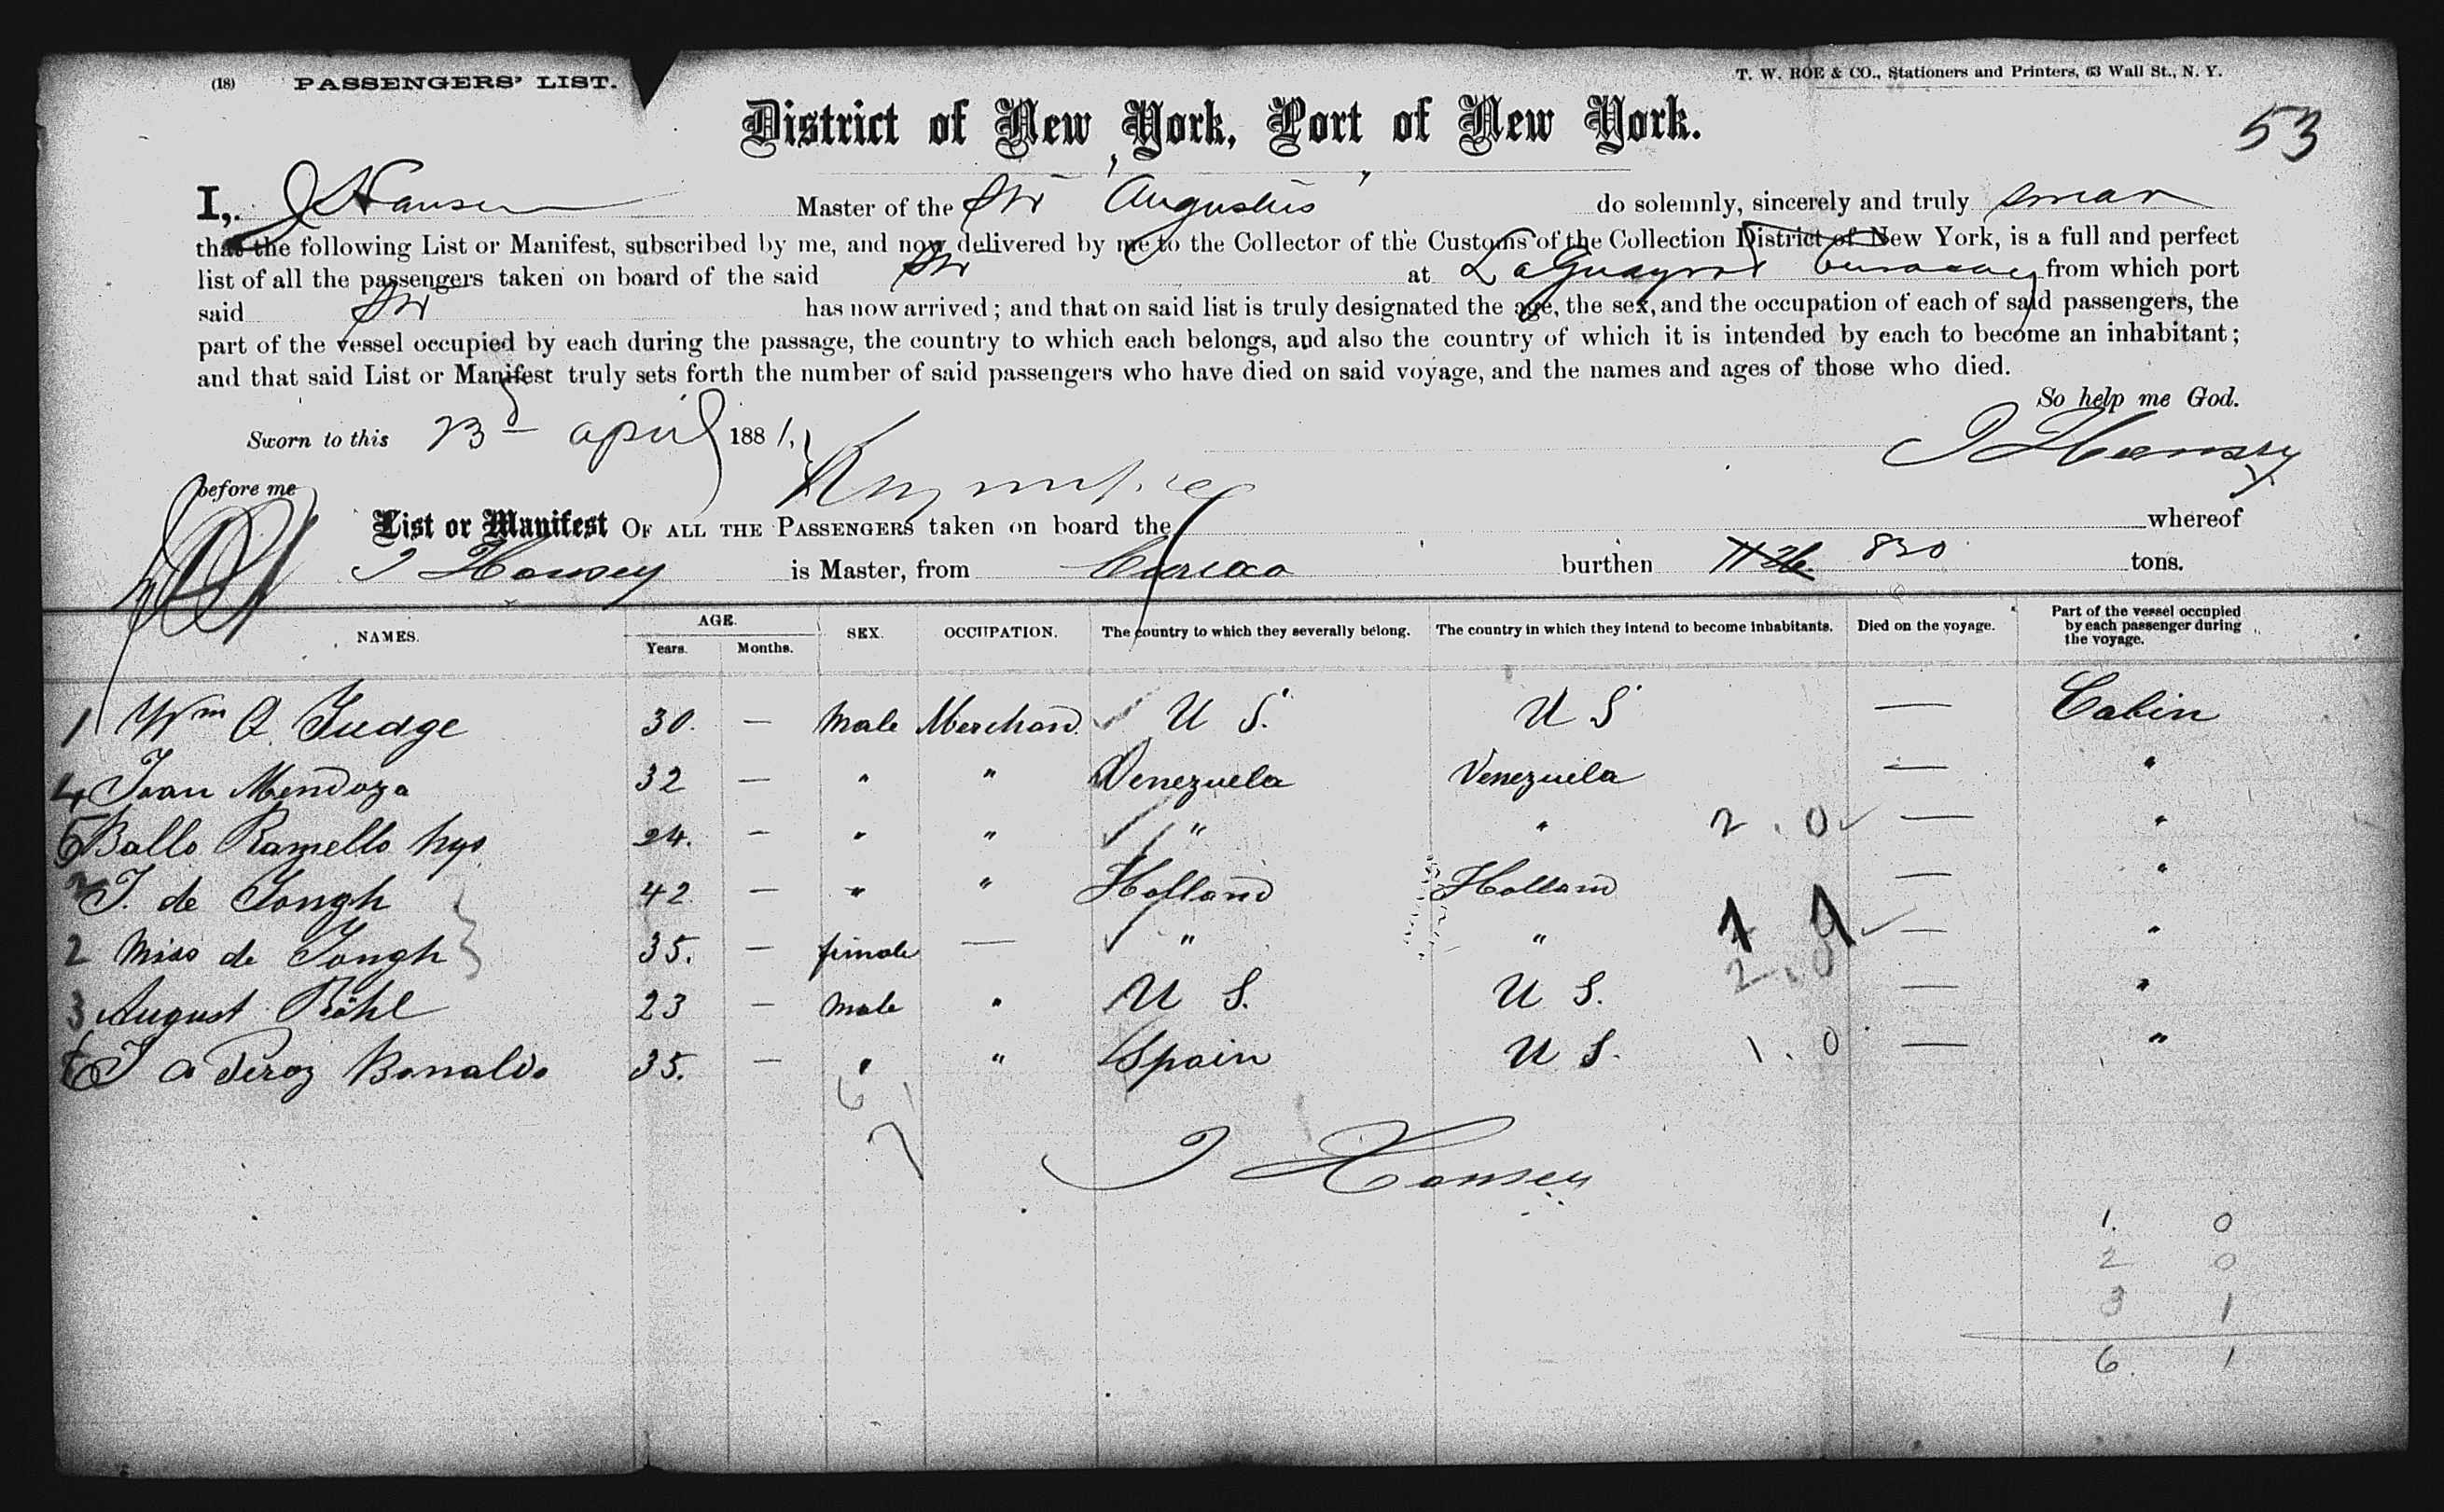 (18) PASSENGERS' LIST.
T. W. ROE & CO., Stationers and Printers, 63 Wall St., N. Y.
53
District of New York, Port of New York.
I, J Hansen Master of the Str "Augustus" do solemnly, sincerely and truly swear
that the following List or Manifest, subscribed by me, and now delivered by me to the Collector of the Customs of the Collection District of New York, is a full and perfect
list of all the passengers taken on board of the said Str at LaGuayra & Curacao from which port
said Str has now arrived; and that on said list is truly designated the age, the sex, and the occupation of each of said passengers, the
part of the vessel occupied by each during the passage, the country to which each belongs, and also the country of which it is intended by each to become an inhabitant;
and that said List or Manifest truly sets forth the number of said passengers who have died on said voyage, and the names and ages of those who died.
So help me God.
Sworn to this 23d April 1881,
J Hansen
before me
List or Manifest OF ALL THE PASSENGERS taken on board the whereof
J Hansen is Master, from burthen 830 tons.
NAMES. AGE. Years. Months. SEX. OCCUPATION. The country to which they severally belong. The country in which they intend to become inhabitants. Died on the voyage. Part of the vessel occupied by each passenger during the voyage.
1 Wm Q Judge 30. — Male Merchand. U S. U S — Cabin
4 Juan Mendoza 32 — " " Venezuela Venezuela — "
5 Ballo Ramello hyo 24. — " " " " 2. 0 — "
2 J. de Jongh 42 — " " Holland Holland — "
2 Miss de Jongh 35. — female — " " 1 1 — "
2. 0
3 August Röhl 23 — Male " U S. U S. — "
6 J a Perez Bonaldo 35. — " " Spain U S. 1. 0 — "
6 1
7
J Hansen
1. 0
2 0
3 1
6. 1